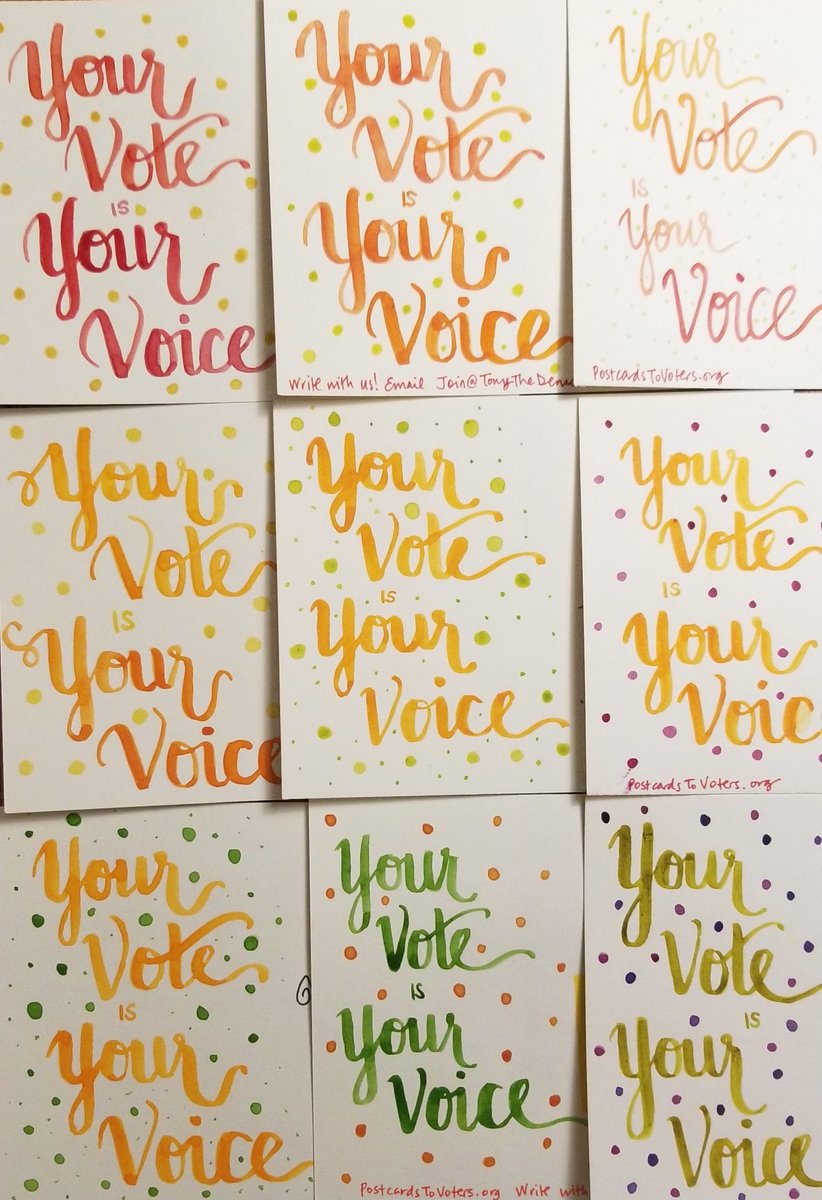 Your
Vote
is
Your
Voice
Your
Vote
is
Your
Voice
Write with us! Email Join@TonyTheDem
Your
Vote
is
Your
Voice
PostcardsToVoters.org
Your
Vote
is
Your
Voice
Your
Vote
is
Your
Voice
Your
Vote
is
Your
Voic
PostcardsToVoters.org
Your
Vote
is
Your
Voice
Your
Vote
is
Your
Voice
PostcardsToVoters.org Write with
Your
Vote
is
Your
Voice